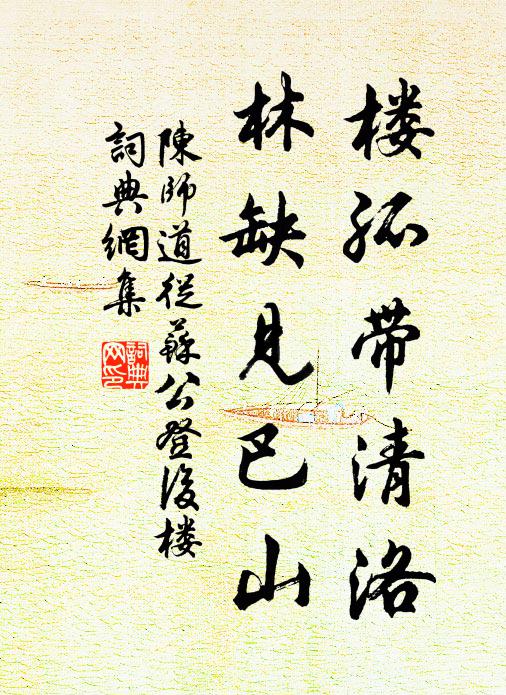 楼孤带清洛
林缺見巴山
陳師道從蘇公登後楼
詞典網集
詞典網印